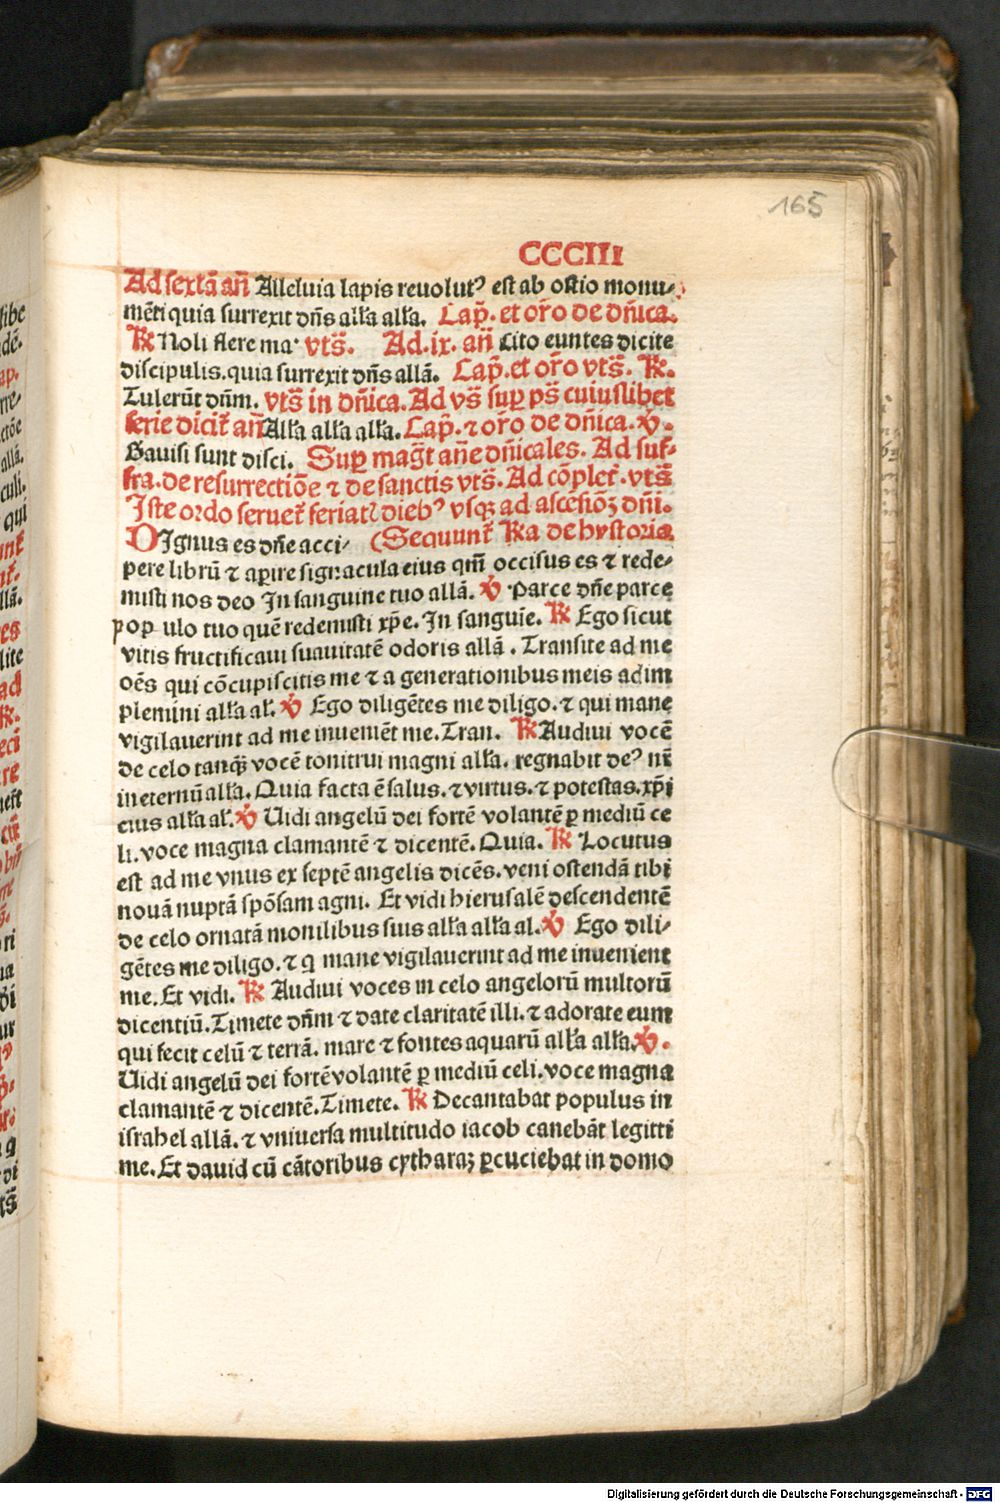 165
CCCIII
Ad sextā añ Alleluia lapis reuolutꝰ est ab ostio monu-
mēti quia surrexit dñs all'a all'a. Cap̄. et oŕo de dñica.
℟ Noli flere maꝰ vts̄. Ad. ix. añ Cito euntes dicite
discipulis. quia surrexit dñs allā. Cap̄. et oŕo vts̄. ℟.
Tulerūt dñm. vts̄ in dñica. Ad vs̄ suꝑ ps̄ cuiuslibet
ferie dicit̄ añ All'a all'a all'a. Cap̄. ⁊ oŕo de dñica. ℣.
Gauisi sunt disci. Suꝑ mag̃t añe dñicales. Ad suf-
fra. de resurrectiōe ⁊ de sanctis vts̄. Ad cōplet̄. vts̄
Iste ordo seruet̄ feriatꝭ diebꝰ vsqꝫ ad ascēsiōꝫ dñi.
DIgnus es dñe acci- (Sequunt̄ ℟a de hystoria
pere librū ⁊ aperire signacula eius qm̄ occisus es ⁊ rede-
misti nos deo In sanguine tuo allā. ℣ Parce dñe parce
pop ulo tuo quē redemisti xp̄e. In sanguīe. ℟ Ego sicut
vitis fructificaui suauitatē odoris allā. Transite ad me
oēs qui cōcupiscitis me ⁊ a generationibus meis adim
plemini all'a al'. ℣ Ego diligētes me diligo. ⁊ qui mane
vigilauerint ad me inueniēt me. Tran. ℟ Audiui vocē
de celo tanqꝫ vocē tonitrui magni all'a. regnabit deꝰ nr̄
in eternū all'a. Quia facta ē salus. ⁊ virtus. ⁊ potestas. xp̄i
eius all'a al'. ℣ Uidi angelū dei fortē volantē ꝑ mediū ce
li. voce magna clamantē ⁊ dicentē. Quia. ℟ Locutus
est ad me vnus ex septē angelis dicēs. veni ostendā tibi
nouā nuptā spōsam agni. Et vidi hierusalē descendentē
de celo ornatā monilibus suis all'a all'a al. ℣ Ego dili-
gētes me diligo. ⁊ q mane vigilauerint ad me inuenient
me. Et vidi. ℟ Audiui voces in celo angelorū multorū
dicentiū. Timete dñm ⁊ date claritatē illi. ⁊ adorate eum
qui fecit celū ⁊ terrā. mare ⁊ fontes aquarū all'a all'a. ℣.
Uidi angelū dei fortē volantē ꝑ mediū celi. voce magna
clamantē ⁊ dicentē. Timete. ℟ Decantabat populus in
israhel allā. ⁊ vniuersa multitudo iacob canebāt legitti
me. Et dauid cū cātoribus cytharaꝫ ꝑcuciebat in domo
Digitalisierung gefördert durch die Deutsche Forschungsgemeinschaft - DFG